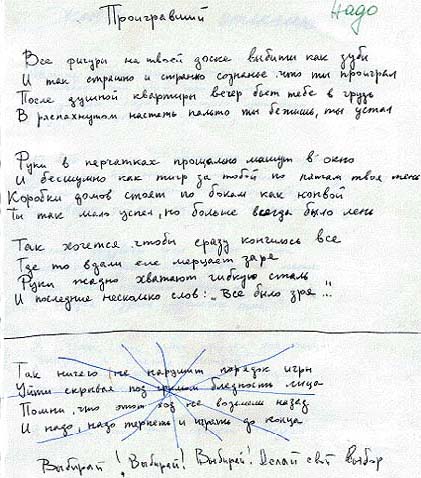 Проигравший
Надо
Все фигуры на твоей доске выбиты как зубы
И так страшно и странно сознанье что ты проиграл
После душной квартиры вечер бьет тебе в грудь
В распахнутом настежь пальто ты бежишь, ты устал
Руки в перчатках прощально машут в окно
И бесшумно как тигр за тобой по пятам твоя тень
Коробки домов стоят по бокам как конвой
Ты так мало успел, но больше всегда было лень
Так хочется чтобы сразу кончилось все
Где то вдали еле мерцает заря
Руки жадно хватают гибкую сталь
И последние несколько слов: „Все было зря"...
Так ничего не нарушит порядок игры
Уйти скрывая под гримом бледность лица
Помни, что этот ход не возьмешь назад
И надо, надо терпеть и играть до конца
Выбирай! Выбирай! Выбирай! Делай свой выбор